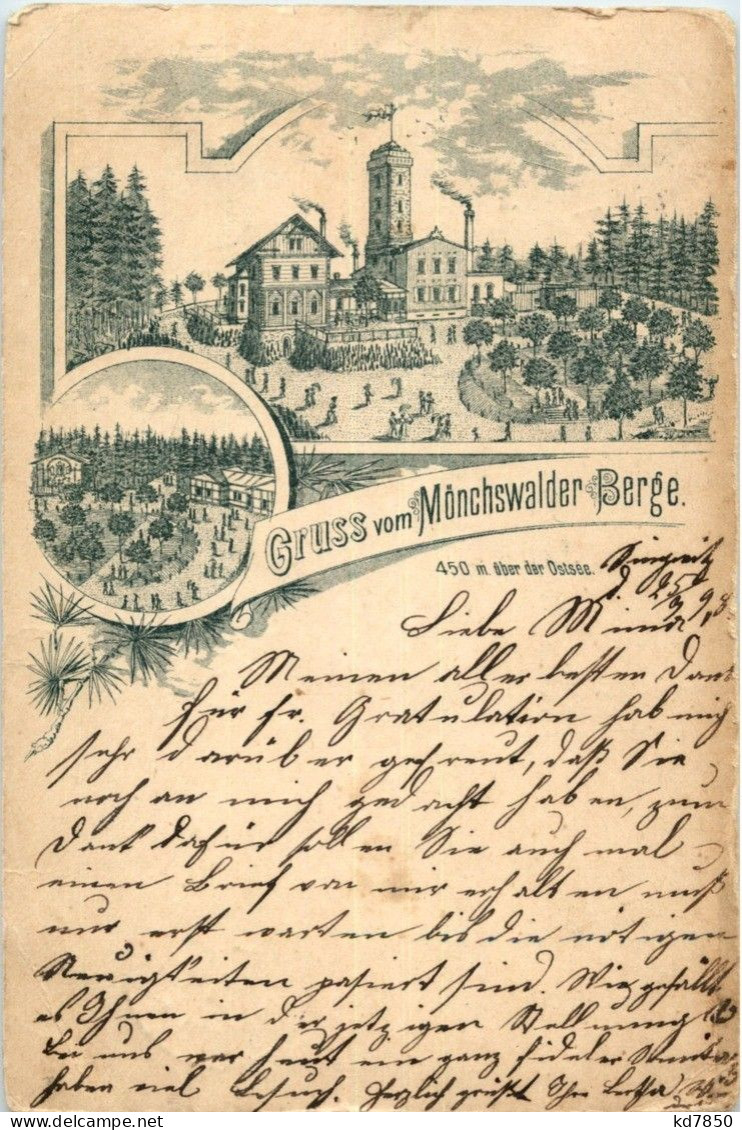 Gruss vom Mönchswalder Berge.
450 m. über der Ostsee.
d. 25
Liebe Minna
Meinen allerbesten Dank
für fr. Gratulation hab mich
sehr darüber gefreut, daß Sie
noch an mich gedacht haben, zum
Dank dafür sollen Sie auch mal
einen Brief von mir erhalten muß
nur erst warten bis die nötigen
Neuigkeiten pasiert sind. Wie gefällt
es Ihnen in der jetzigen Stellung
Bei uns war heut ein ganz fideler
haben viel Besuch. Herzlich grüßt Ihre Bertha
kd7850
Delcampe.net